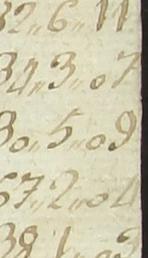 32.. 6.. 11
34.. 3.. 07
30.. 5.. 09
67.. 2.. 04
38.. 1.. 03